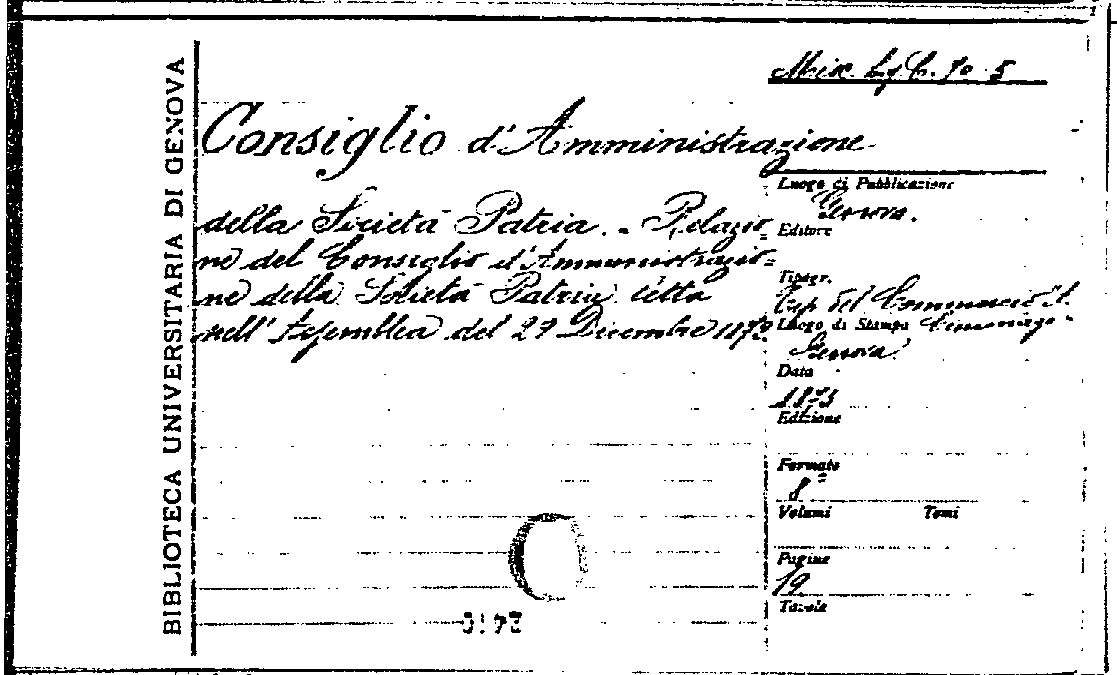 1
BIBLIOTECA UNIVERSITARIA DI GENOVA
Misc. Lig. C. 70. 5
Consiglio d'Amministrazione
della Società Patria. - Relazio-
ne del Consiglio d'Amministrazio=
ne della Società Patria letta
nell'Assemblea del 29 Dicembre
Luogo di Pubblicazione
Genova.
Editore
Tipogr.
Tip. del Commercio
Luogo di Stampa
Genova
Data
1873
Edizione
Formato
8°
Volumi Tomi
Pagine
19
Tavole